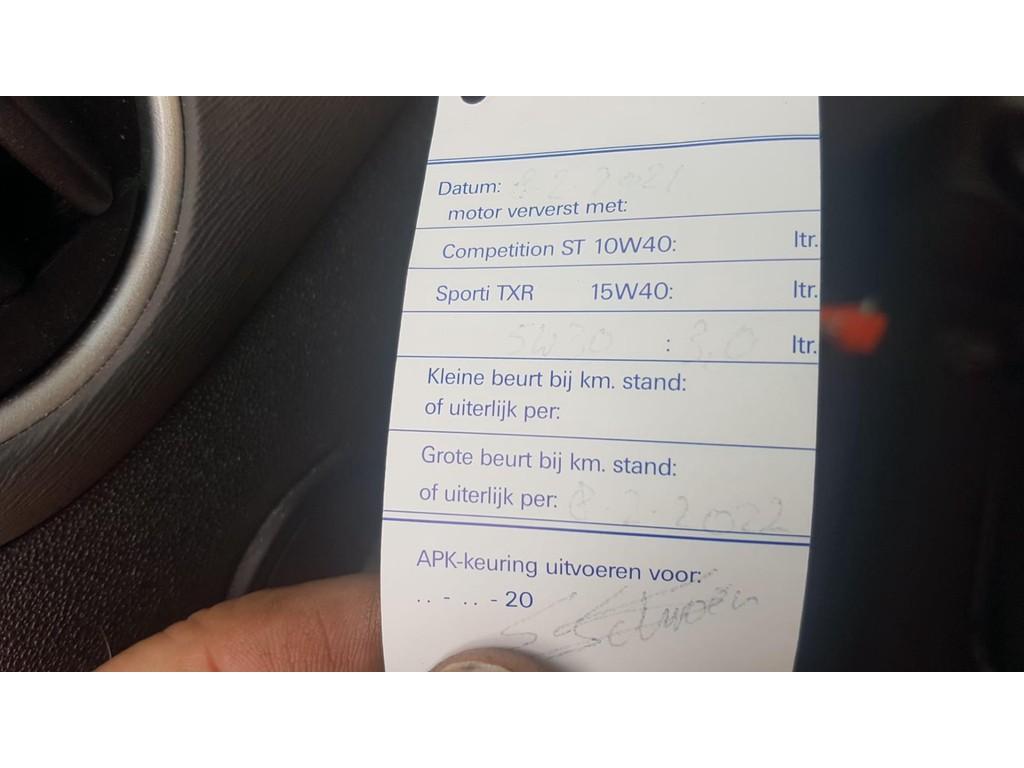 Datum: 8.2.2021
motor ververst met:
Competition ST 10W40: ltr.
Sporti TXR 15W40: ltr.
5W30 : 3.0 ltr.
Kleine beurt bij km. stand:
of uiterlijk per:
Grote beurt bij km. stand:
of uiterlijk per: 8.2.2022
APK-keuring uitvoeren voor:
.. - .. - 20